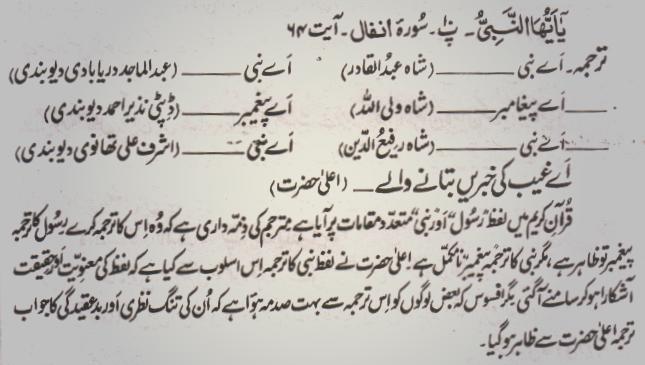 يٰٓاَيُّهَا النَّبِىُّ۔ پ۱۰۔ سُورۂ انفال۔ آیت ۶۴
ترجمہ۔ اَے نبی ______ (شاہ عبدُ القادر) اَے نبی ______ (عبدالماجد دریابادی دیوبندی)
______ اَے پیغامبر ______ (شاہ ولی اللہ) اَے پیغمبر ______ (ڈپٹی نذیر احمد دیوبندی)
______ اَے نبی ______ (شاہ رفیعُ الدّین) اَے نبی ______ (اشرف علی تھانوی دیوبندی)
اَے غیب کی خبریں بتانے والے __ (اعلیٰ حضرت)
قُرآنِ کریم میں لفظ "رسُول" اَور نبی" متعدد مقامات پر آیا ہے مترجم کی ذِمّہ داری ہے کہ وُہ اِس کا ترجمہ کرے رسُول کا ترجمہ
پیغمبر تو ظاہر ہے، مگر نبی کا ترجمہ پیغمبر نا مکمّل ہے۔ اعلیٰ حضرت نے لفظ نبی کا ترجمہ اِس اسلوب سے کیا ہے کہ لفظ کی معنویّت اَور حقیقت
آشکارا ہو کر سامنے آ گئی مگر افسوس کہ بعض لوگوں کو اِس ترجمہ سے بہت صدمہ ہؤا ہے کہ اُن کی تنگ نظری اَور بد عقیدگی کا جواب
ترجمہ اعلیٰ حضرت سے ظاہر ہو گیا۔